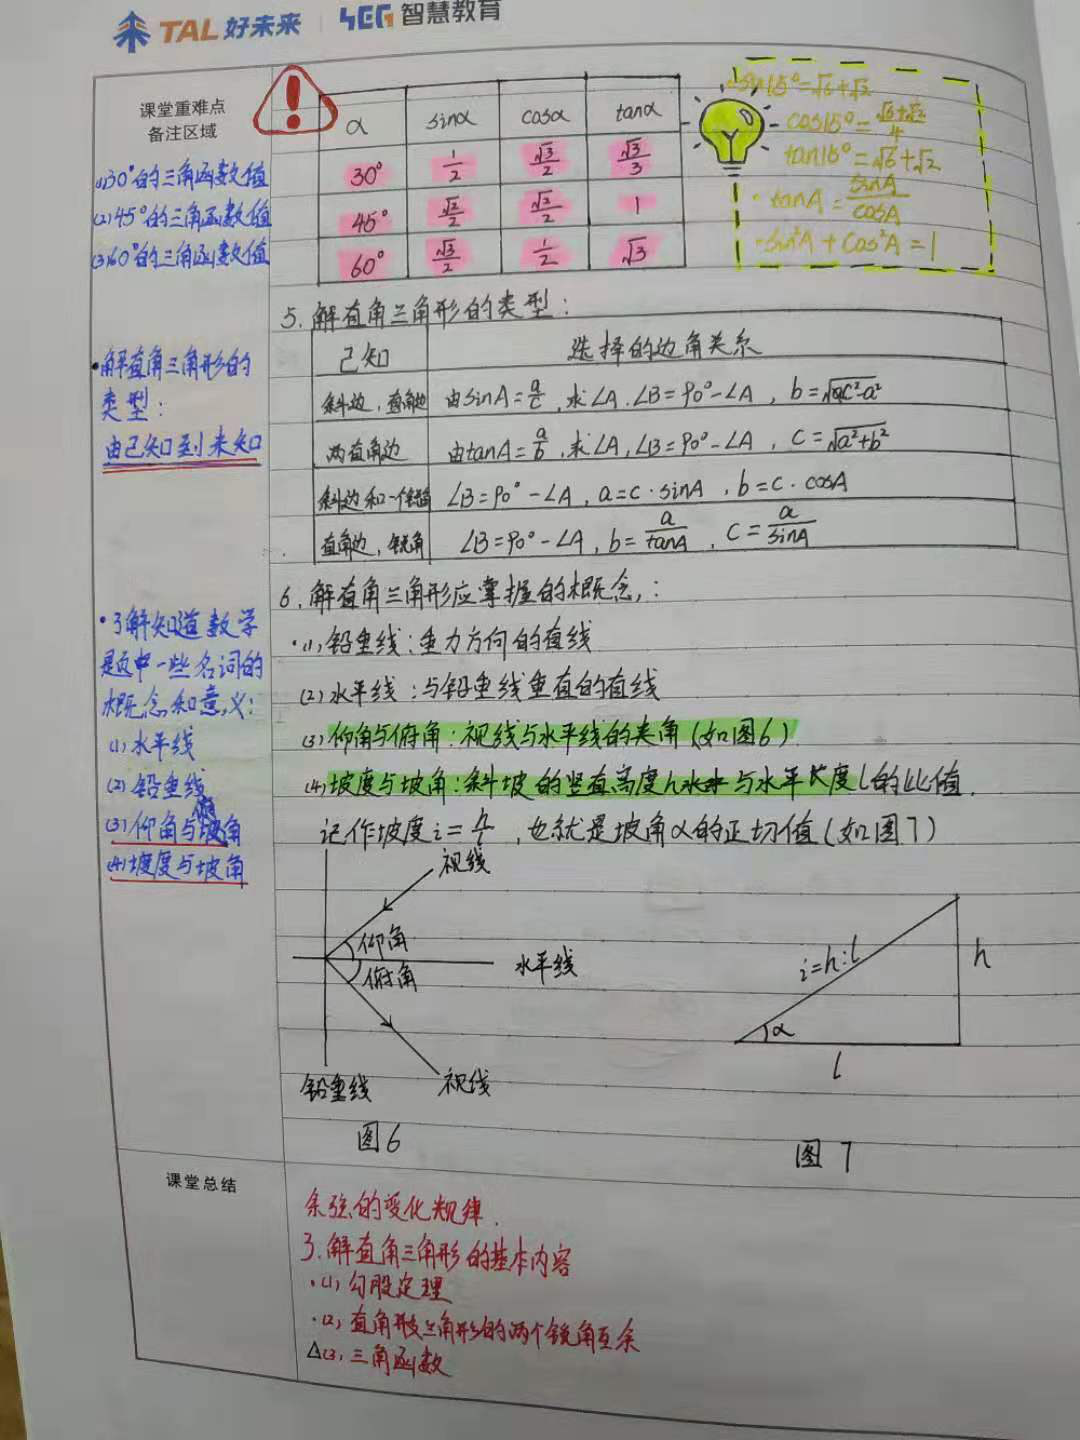 TAL 好未来 | SEG 智慧教育
课堂重难点
备注区域
(1)30°的三角函数值
(2)45°的三角函数值
(3)60°的三角函数值
α sinα cosα tanα
30° 1/2 √3/2 √3/3
45° √2/2 √2/2 1
60° √3/2 1/2 √3
sin15°=√6+√2
cos15°=(√6+√2)/4
tan15°=√6+√2
·tanA=sinA/cosA
·sin²A+cos²A=1
5.解直角三角形的类型:
已知 选择的边角关系
斜边,直角边 由sinA=a/c,求∠A,∠B=90°-∠A,b=√c²-a²
两直角边 由tanA=a/b,求∠A,∠B=90°-∠A,c=√a²+b²
斜边和一个锐角 ∠B=90°-∠A,a=c·sinA,b=c·cosA
直角边,锐角 ∠B=90°-∠A,b=a/tanA,c=a/sinA
·解直角三角形的
类型:
由已知到未知
6.解直角三角形应掌握的概念:
·(1)铅垂线:重力方向的直线
(2)水平线:与铅垂线垂直的直线
(3)仰角与俯角:视线与水平线的夹角(如图6)
(4)坡度与坡角:斜坡的竖直高度h与水平长度l的比值.
记作坡度i=h/l,也就是坡角α的正切值(如图7)
·了解知道数学
题中一些名词的
概念和意义:
(1)水平线
(2)铅垂线
(3)仰角与俯角
(4)坡度与坡角
视线
仰角
俯角
水平线
铅垂线
视线
图6
i=h:l
h
α
l
图7
课堂总结
余弦的变化规律.
3.解直角三角形的基本内容
·(1)勾股定理
·(2)直角三角形的两个锐角互余
△(3)三角函数